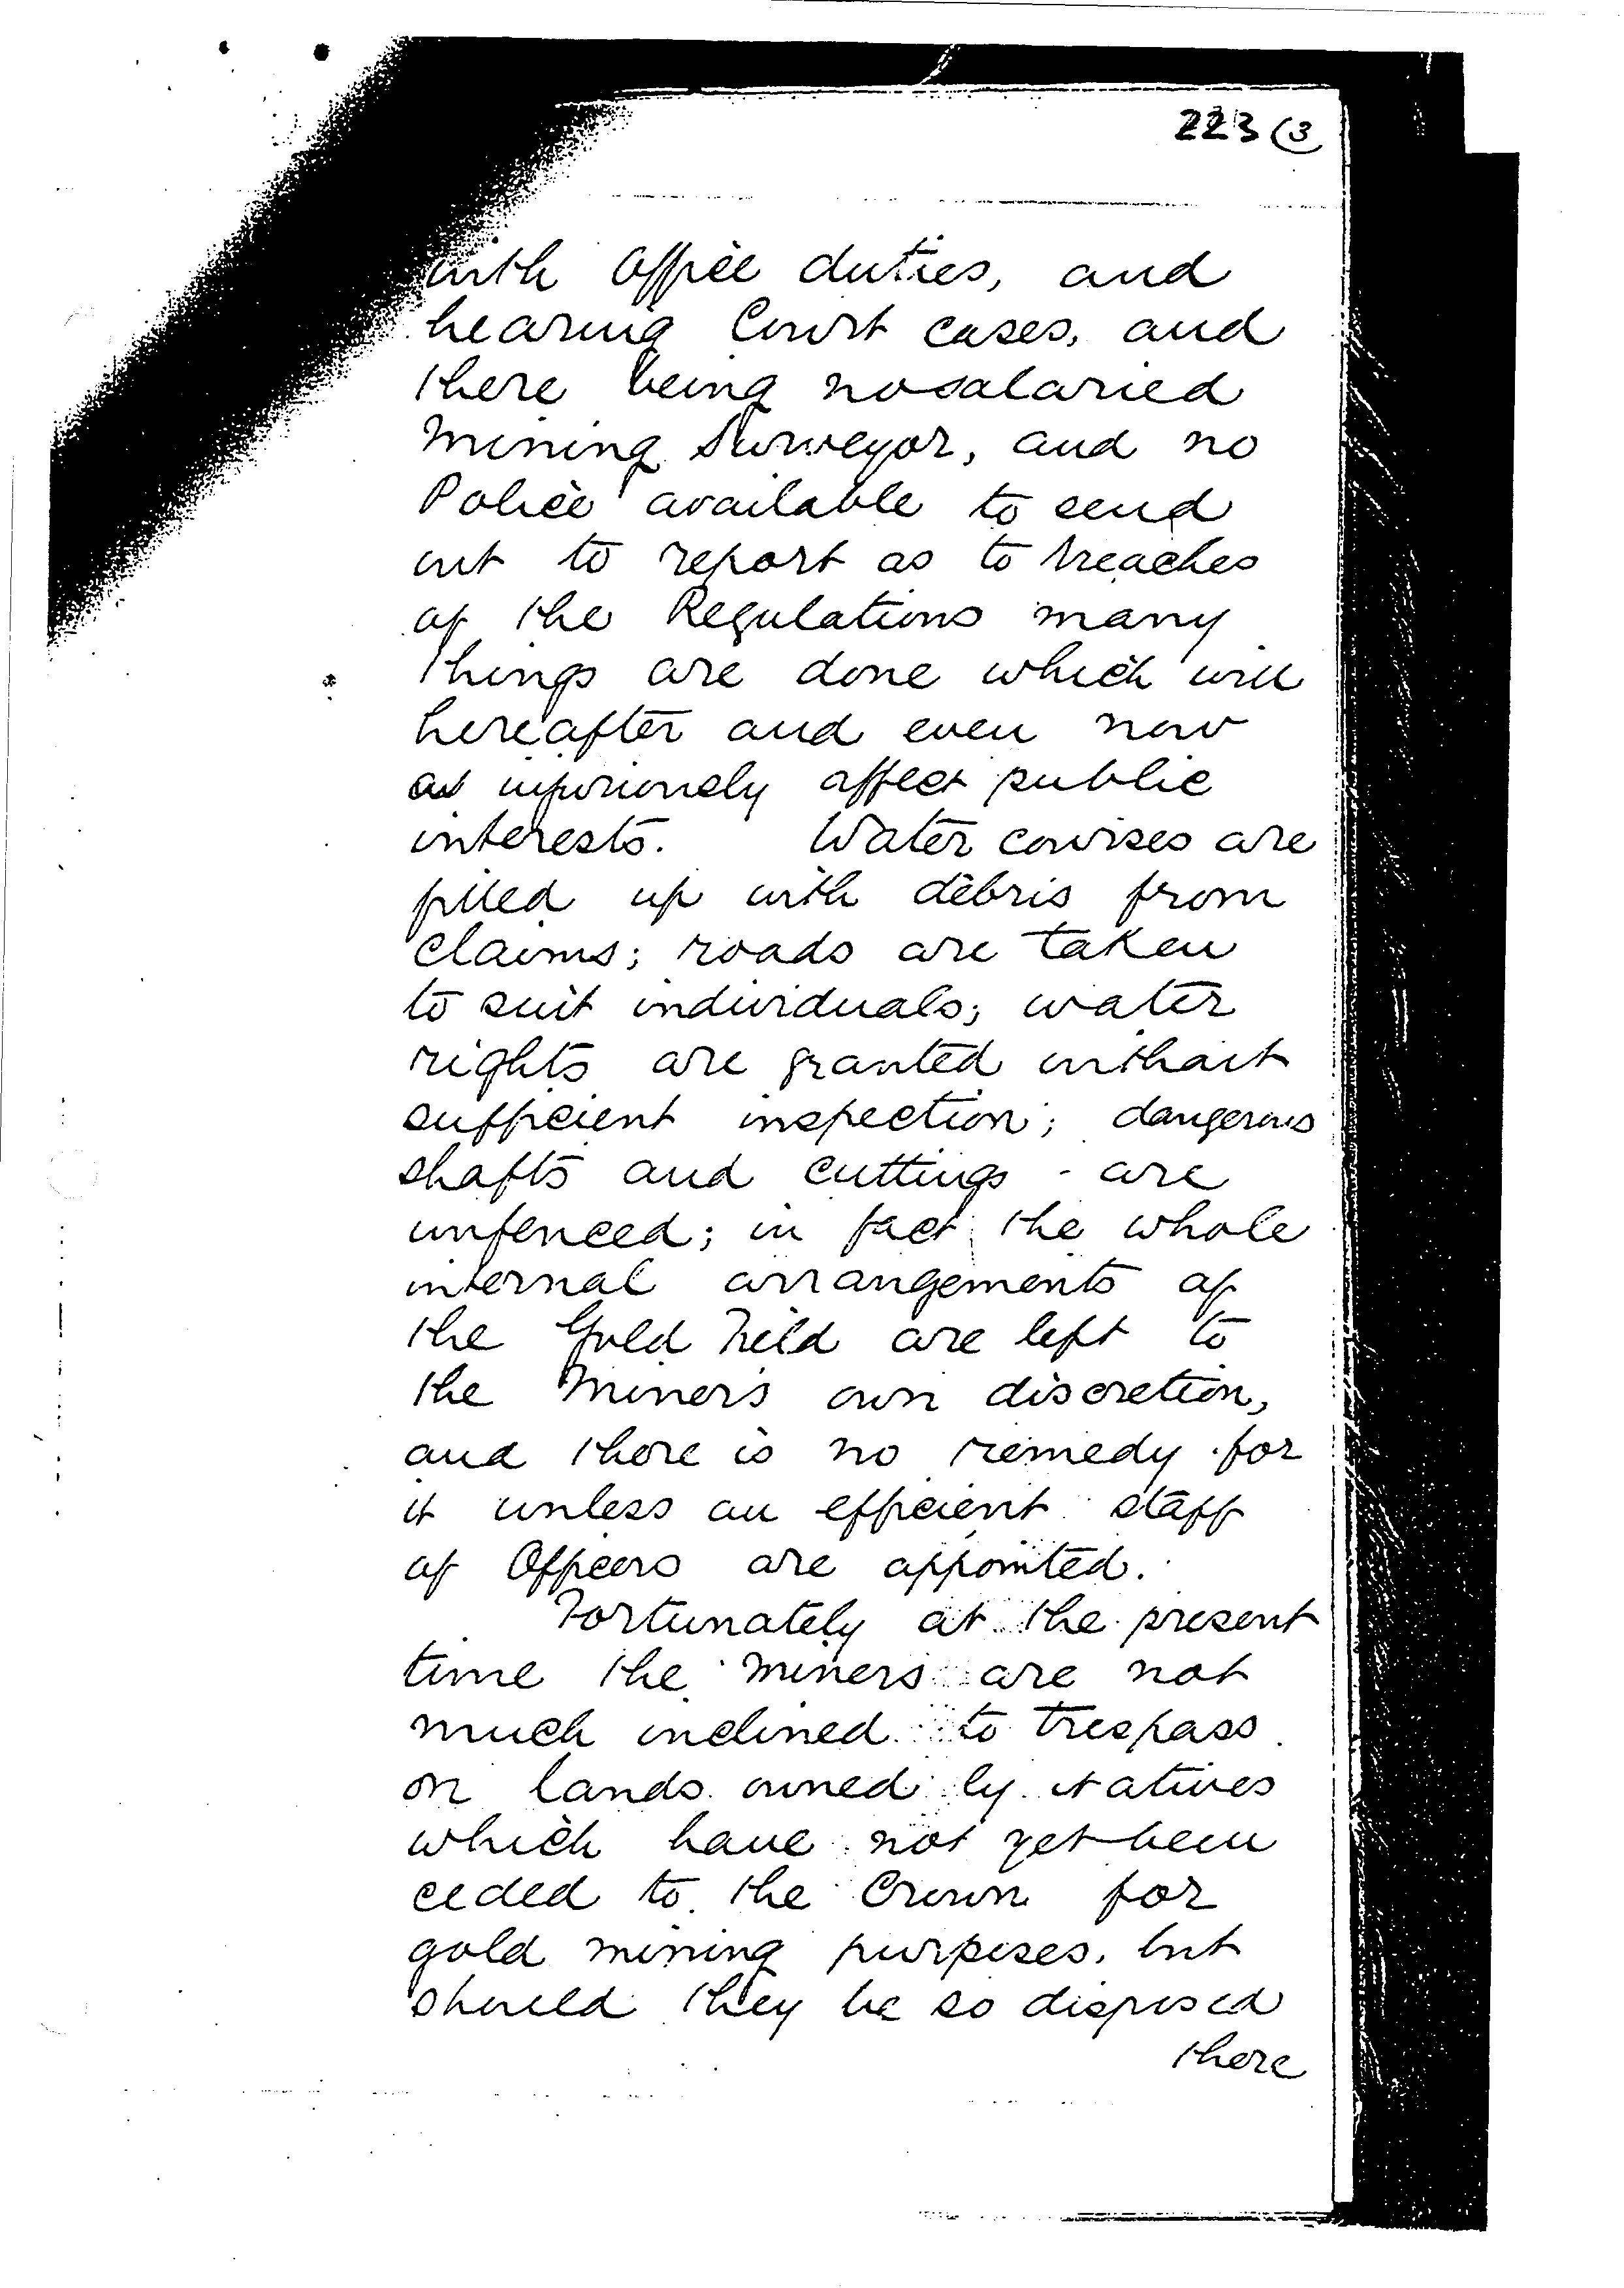 223 (3
with Office duties, and
hearing Court cases, and
there being no salaried
Mining Surveyor, and no
Police available to send
out to report as to breaches
of the Regulations many
things are done which will
hereafter and even now
injuriously affect public
interests. Water courses are
filled up with débris from
claims; roads are taken
to suit individuals; water
rights are granted without
sufficient inspection; dangerous
shafts and cuttings - are
unfenced; in fact the whole
internal arrangements of
the Gold Field are left to
the Miner's own discretion,
and there is no remedy for
it unless an efficient staff
of Officers are appointed.
Fortunately at the present
time the Miners are not
much inclined to trespass
on lands owned by Natives
which have not yet been
ceded to the Crown for
gold mining purposes, but
should they be so disposed
there